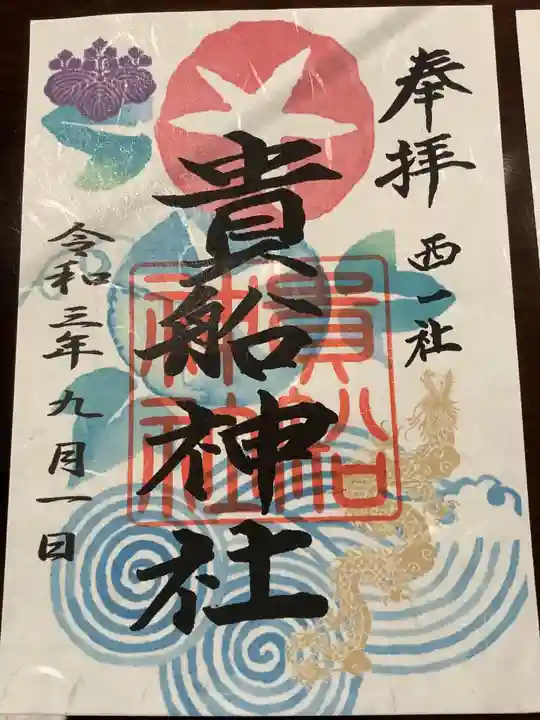 奉拝
西一社
貴船神社
貴船神社
令和三年九月一日